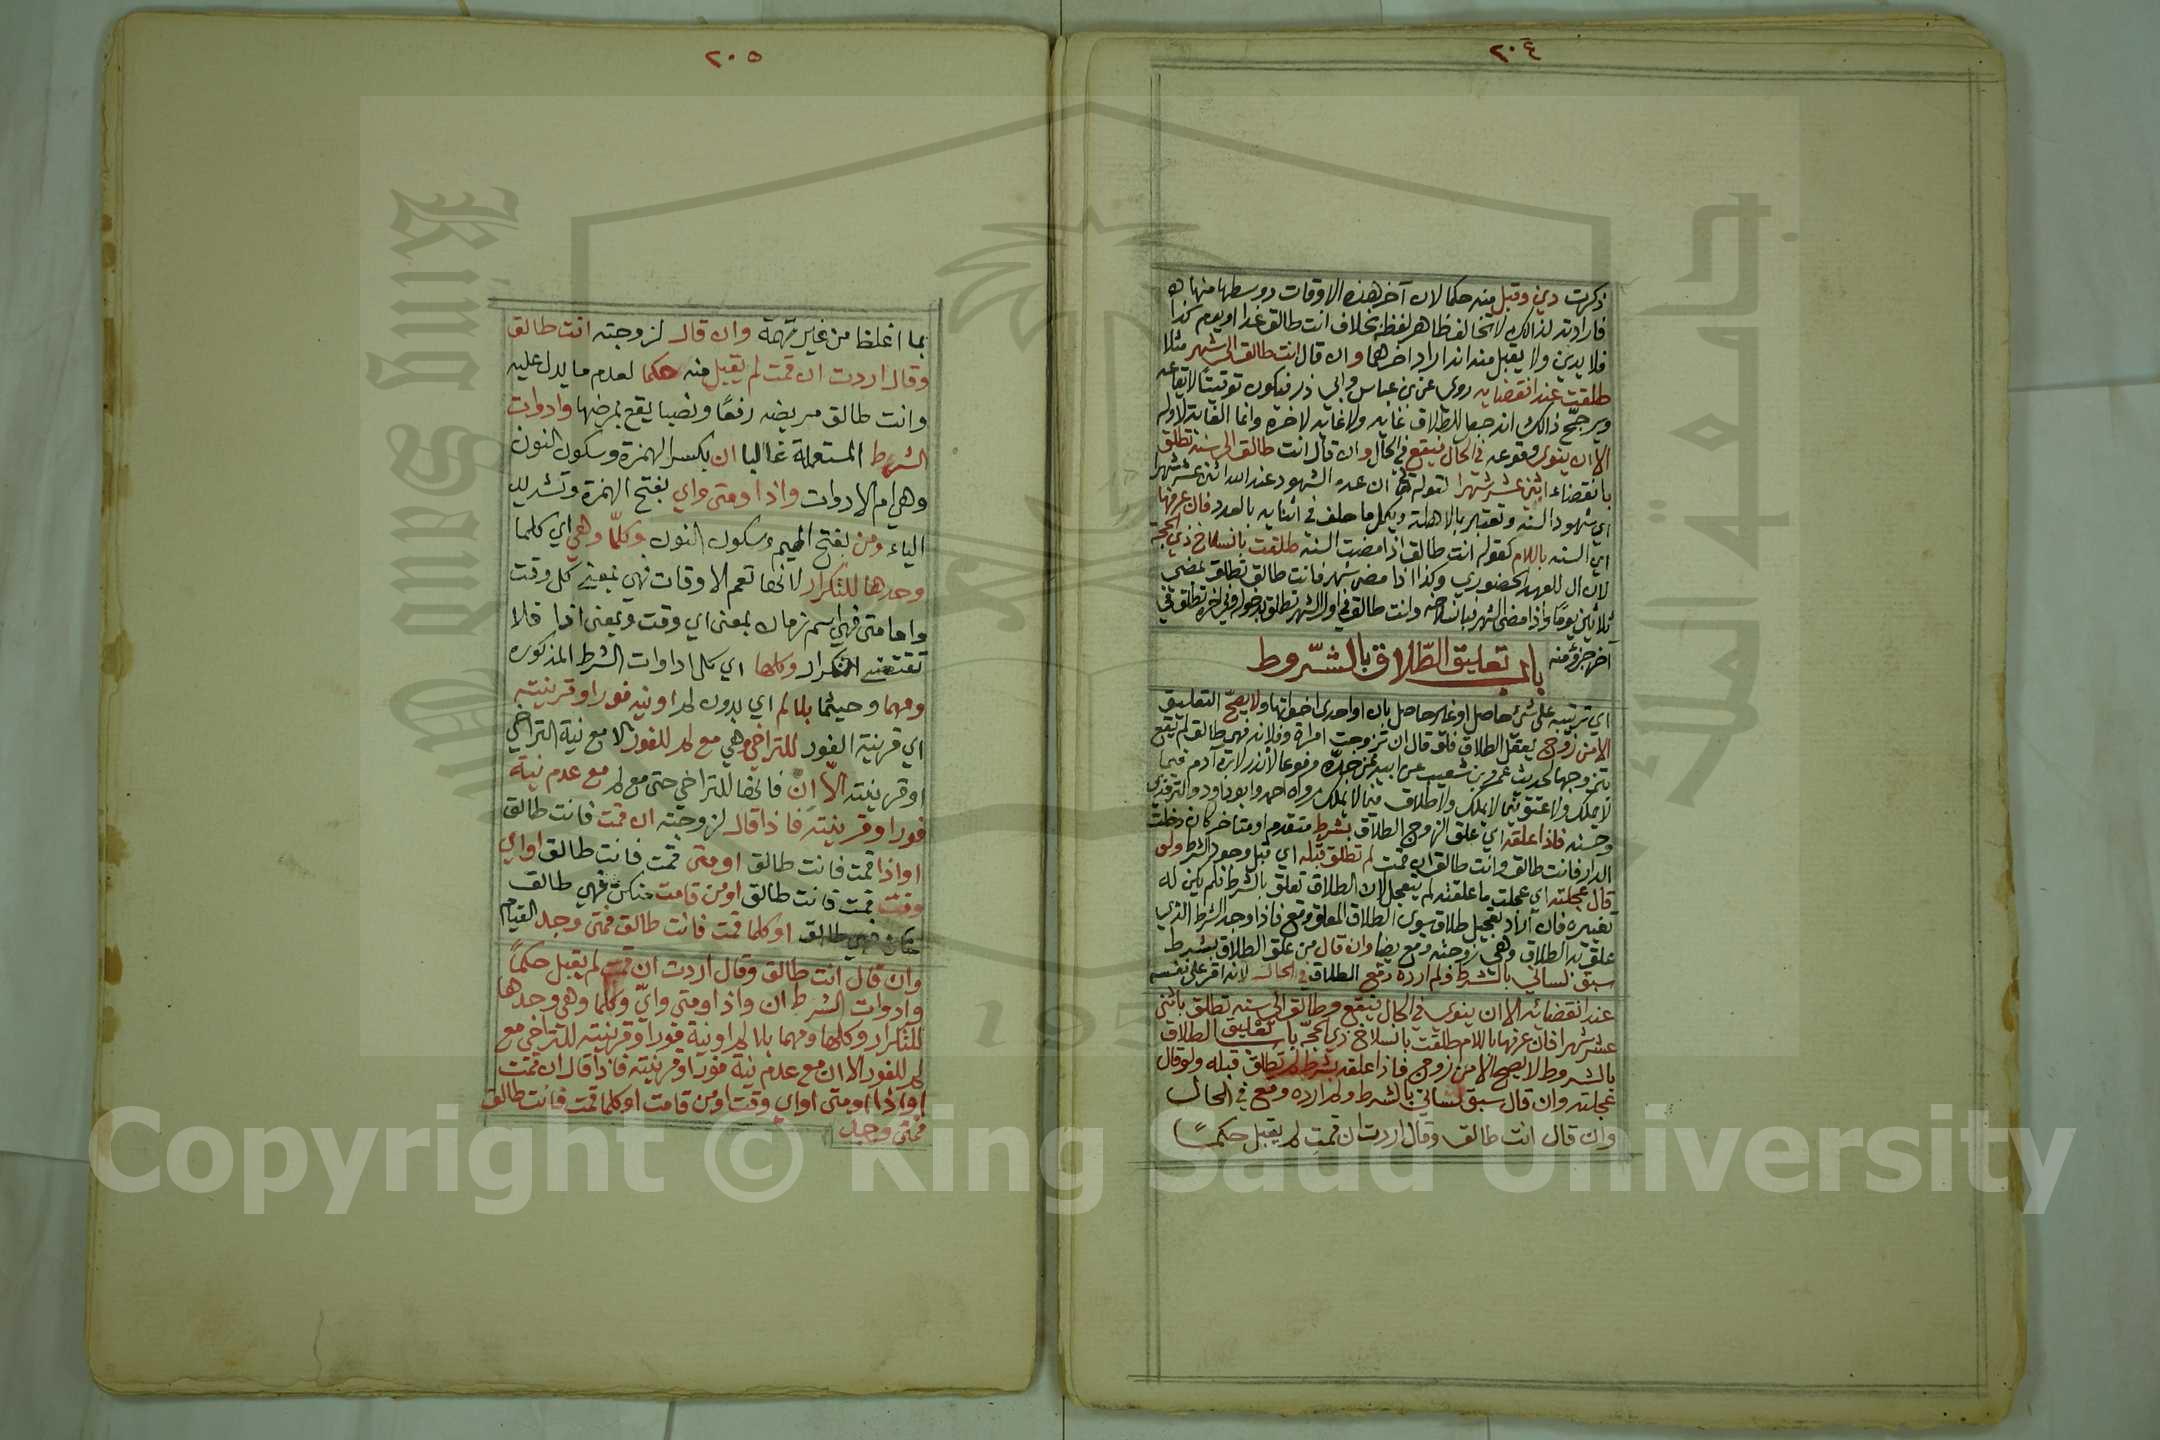 ٢٠٤
ذكرت دين وقبل منه حكما لان آخر هذه الاوقات ووسطها منها
فارادته لذالك لا تخالف ظاهر لفظه بخلاف انت طالق غدا او يوم كذا
فلا يدين ولا يقبل منه انه اراد اخرهما وان قال انت طالق الى شهر مثلا
طلقت عند انقضايه روي عن بن عباس وابي ذر فيكون توقيتا لايقاعه
ويرجح ذالك انه جعل للطلاق غايه ولا غايه لاخره وانما الغاية لاوله
الا ان ينوي وقوعه في الحال فيقع في الحال وان قال انت طالق الى سنه تطلق
بانقضاء اثني عشر شهرا لقوله تعالى ان عدة الشهور عند الله اثنى عشر شهرا
اي شهور السنه وتعتبر بالاهلة ويكمل ما حلف في اثنايه بالعدد فان عرفها
اي السنه باللام كقوله انت طالق اذا مضت السنة طلقت بانسلاخ ذي الحجة
لان ال للعهد الحضوري وكذا اذا مضى شهر فانت طالق تطلق بمضي
ثلاثين يوما واذا مضى الشهر فبانسلاخه وانت طالق في اول الشهر تطلق بدخوله وفي اخره تطلق في
آخر جزؤ منه باب تعليق الطلاق بالشروط
اي ترتيبه على شيئ حاصل او غير حاصل بان او احدى اخواتها ولا يصح التعليق
الا من زوج يعقل الطلاق فلو قال ان تزوجت امراة وفلانه فهي طالق لم يقع
بتزوجها لحديث عمرو بن شعيب عن ابيه عن جده مرفوعا لا نذر لابن آدم فيما
لا يملك ولا عتق فيما لا يملك ولا طلاق فيما لا يملك رواه احمد وابو داود والترمذي
وحسنه فاذا علقه اي علق الزوج الطلاق بشرط متقدم او متاخر كان دخلت
الدار فانت طالق وانت طالق ان قمت لم تطلق قبله اي قبل وجود الشرط ولو
قال عجلته اي عجلت ما علقته لم يتعجل لان الطلاق تعلق بالشرط فلم يكن له
تغييره فان اراد تعجيل طلاق سوى الطلاق المعلق وقع فاذا وجد الشرط الذي
علق به الطلاق وهي زوجته وقع ايضا وان قال من علق الطلاق بشرط
سبق لساني بالشرط ولم ارده وقع الطلاق في الحال لانه اقر على نفسه
عند انقضائه الا ان ينوي في الحال فيقع وطالق الى سنه تطلق باثني
عشر شهرا فان عرفها باللام طلقت بانسلاخ ذي الحجة باب تعليق الطلاق
بالشروط لا يصح الا من زوج فاذا علقه بشرط لم تطلق قبله ولو قال
عجلته وان قال سبق لساني بالشرط ولم ارده وقع في الحال
وان قال انت طالق وقال اردت ان قمت لم يقبل حكما
٢٠٥
بما اغلظ من غير تهمة وان قال لزوجته انت طالق
وقال اردت ان قمت لم يقبل منه حكما لعدم ما يدل عليه
وانت طالق مريضه رفعا ونصبا يقع بمرضها وادوات
الشرط المستعملة غالبا ان بكسر الهمزة وسكون النون
وهي ام الادوات واذا ومتى واي بفتح الهمزة وتشديد
الياء ومن بفتح الميم وسكون النون وكلما وهي اي كلما
وحدها للتكرار لانها تعم الاوقات فهي بمعنى كل وقت
واما متى فهي اسم زمان بمعنى اي وقت وبمعنى اذا فلا
تقتضي التكرار وكلها اي كل ادوات الشرط المذكوره
ومهما وحيثما بلا لم اي بدون لم او نيه فورا وقرينته
اي قرينة الفور للتراخي وهي مع لم للفور الا مع نية التراخي
او قرينته الا ان فانها للتراخي حتى مع لم مع عدم نية
فورا وقرينته فاذا قال لزوجته ان قمت فانت طالق
او اذا قمت فانت طالق او متى قمت فانت طالق او اي
وقت قمت فانت طالق او من قامت منكن فهي طالق
منكن فهي طالق او كلما قمت فانت طالق فمتى وجد القيام
وان قال انت طالق وقال اردت ان قمت لم يقبل حكما
وادوات الشرط ان واذا ومتى واي وكلما وهي وحدها
للتكرار وكلها ومهما بلا لم او نية فورا وقرينته للتراخي مع
لم للفور الا ان مع عدم نية فورا وقرينته فاذا قال ان قمت
او اذا او متى او اي وقت او من قامت او كلما قمت فانت طالق
فمتى وجد
Copyright © King Saud University
King Saud University
جامعة الملك
195